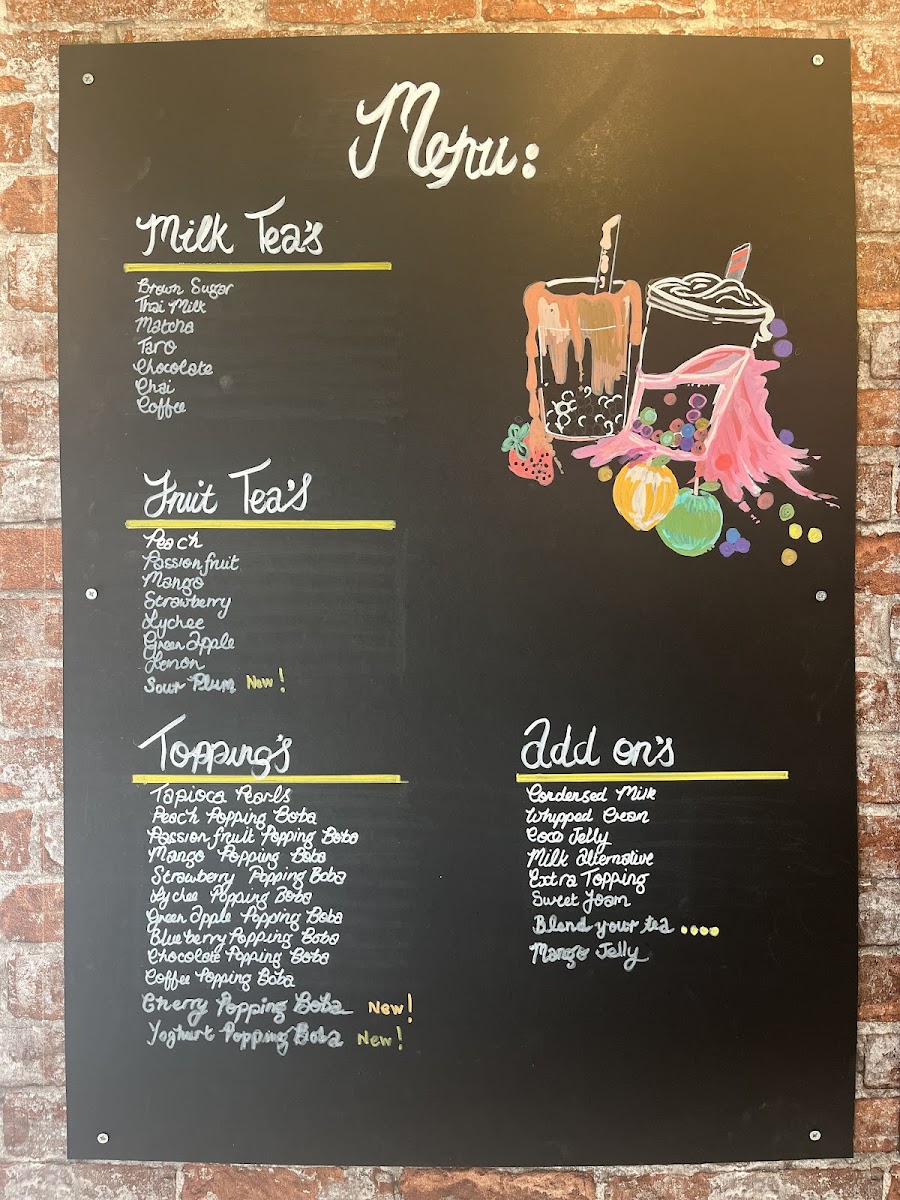 Menu:
Milk Tea's
Brown Sugar
Thai Milk
Matcha
Taro
Chocolate
Chai
Coffee
Fruit Tea's
Peach
Passionfruit
Mango
Strawberry
Lychee
Green Apple
Lemon
Sour Plum New!
Topping's
Tapioca Pearls
Peach Popping Boba
Passion fruit Popping Boba
Mango Popping Boba
Strawberry Popping Boba
Lychee Popping Boba
Green Apple Popping Boba
Blueberry Popping Boba
Chocolate Popping Boba
Coffee Popping Boba
Cherry Popping Boba New!
Yoghurt Popping Boba New!
Add on's
Condensed Milk
Whipped Cream
Coco Jelly
Milk alternative
Extra Topping
Sweet Foam
Blend your tea ....
Mango Jelly